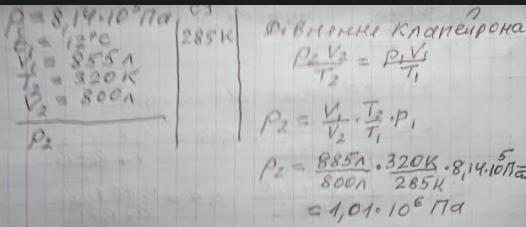 p₁ = 8,14·10⁵ Па
t₁ = 12°C
285 K
V₁ = 855 л
T₂ = 320 K
V₂ = 800 л
p₂
Рівняння Клапейрона
p₂ V₂ / T₂ = p₁ V₁ / T₁
p₂ = V₁ / V₂ · T₂ / T₁ · p₁
p₂ = 885 л / 800 л · 320 K / 285 K · 8,14·10⁵ Па =
= 1,01·10⁶ Па